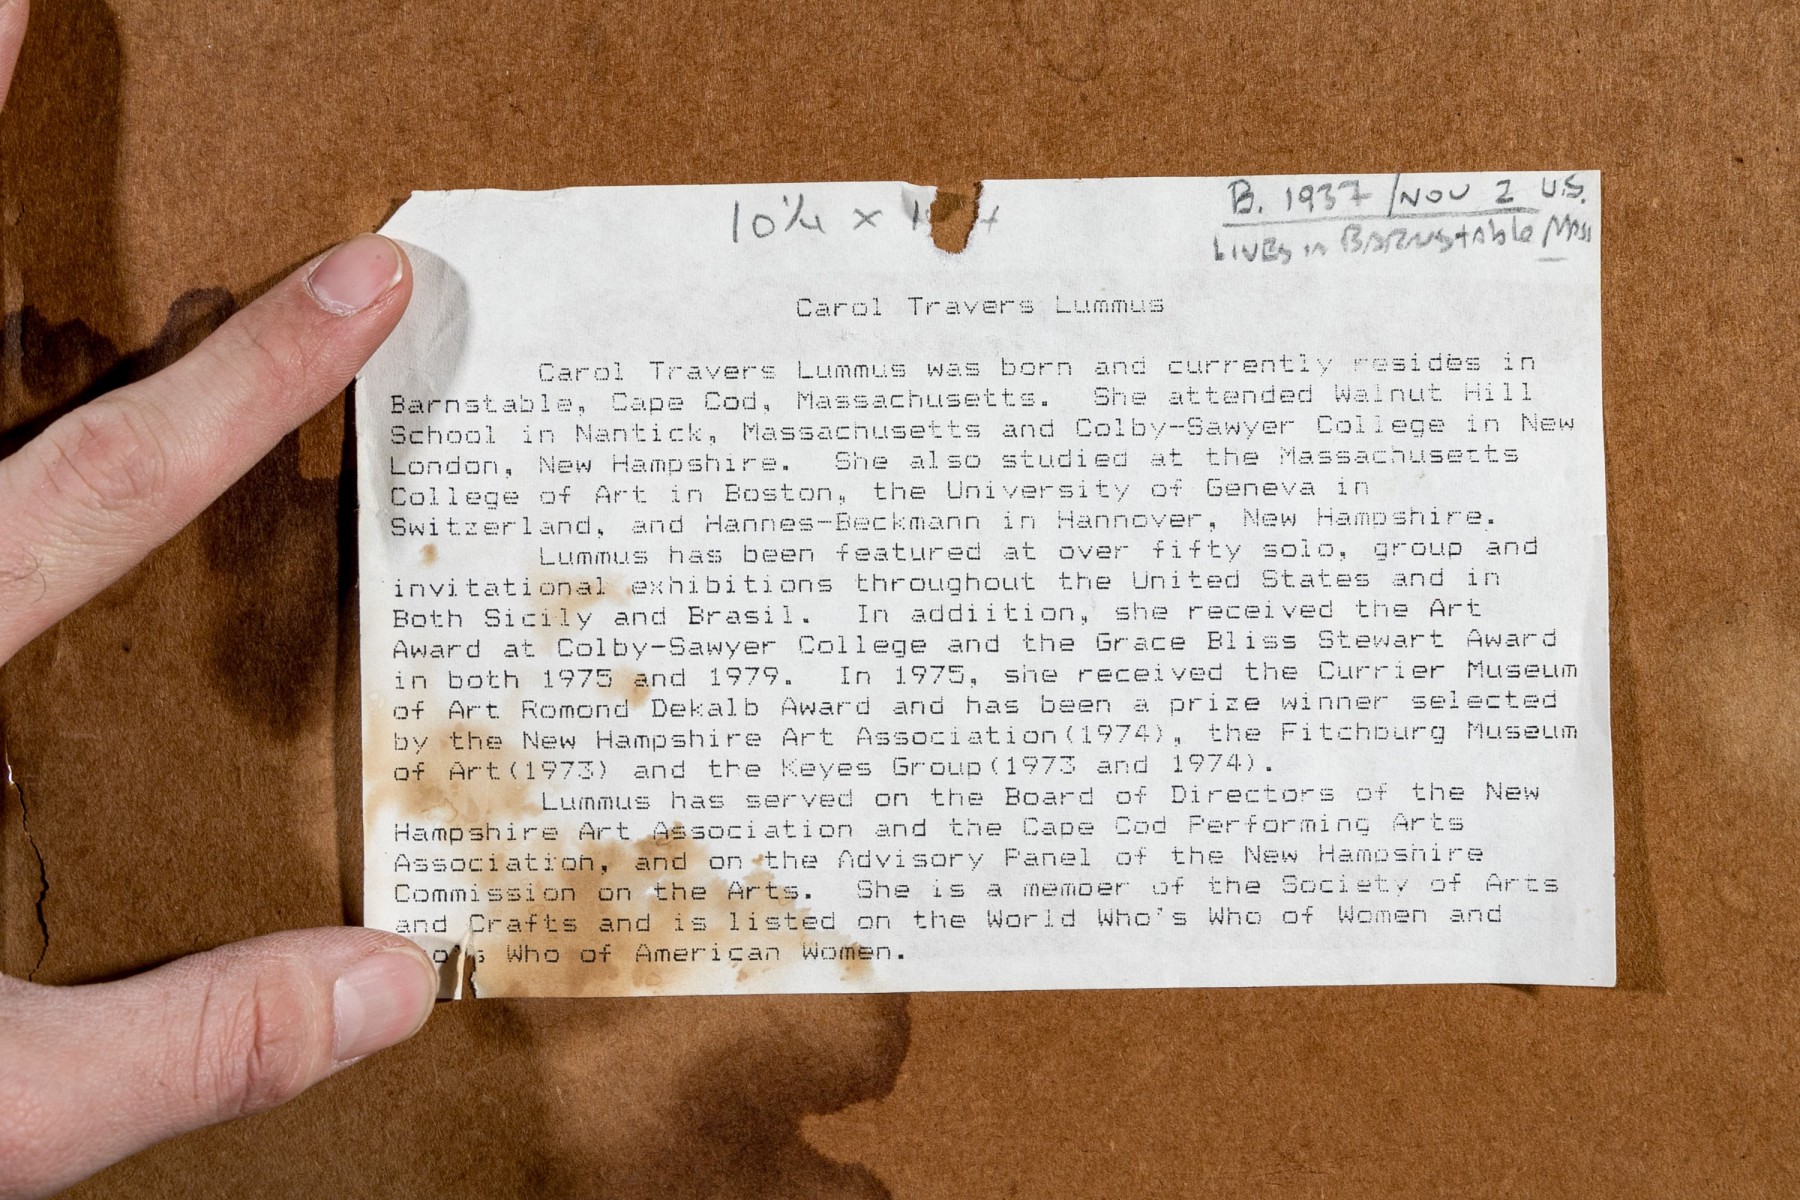 10¼ x
B. 1937 / NOV 2 U.S.
LIVES in BARNSTABLE Mass
Carol Travers Lummus
Carol Travers Lummus was born and currently resides in
Barnstable, Cape Cod, Massachusetts. She attended Walnut Hill
School in Nantick, Massachusetts and Colby-Sawyer College in New
London, New Hampshire. She also studied at the Massachusetts
College of Art in Boston, the University of Geneva in
Switzerland, and Hannes-Beckmann in Hannover, New Hampshire.
Lummus has been featured at over fifty solo, group and
invitational exhibitions throughout the United States and in
Both Sicily and Brasil. In addiition, she received the Art
Award at Colby-Sawyer College and the Grace Bliss Stewart Award
in both 1975 and 1979. In 1975, she received the Currier Museum
of Art Romond Dekalb Award and has been a prize winner selected
by the New Hampshire Art Association(1974), the Fitchburg Museum
of Art(1973) and the Keyes Group(1973 and 1974).
Lummus has served on the Board of Directors of the New
Hampshire Art Association and the Cape Cod Performing Arts
Association, and on the Advisory Panel of the New Hampshire
Commission on the Arts. She is a member of the Society of Arts
and Crafts and is listed on the World Who's Who of Women and
Who of American Women.